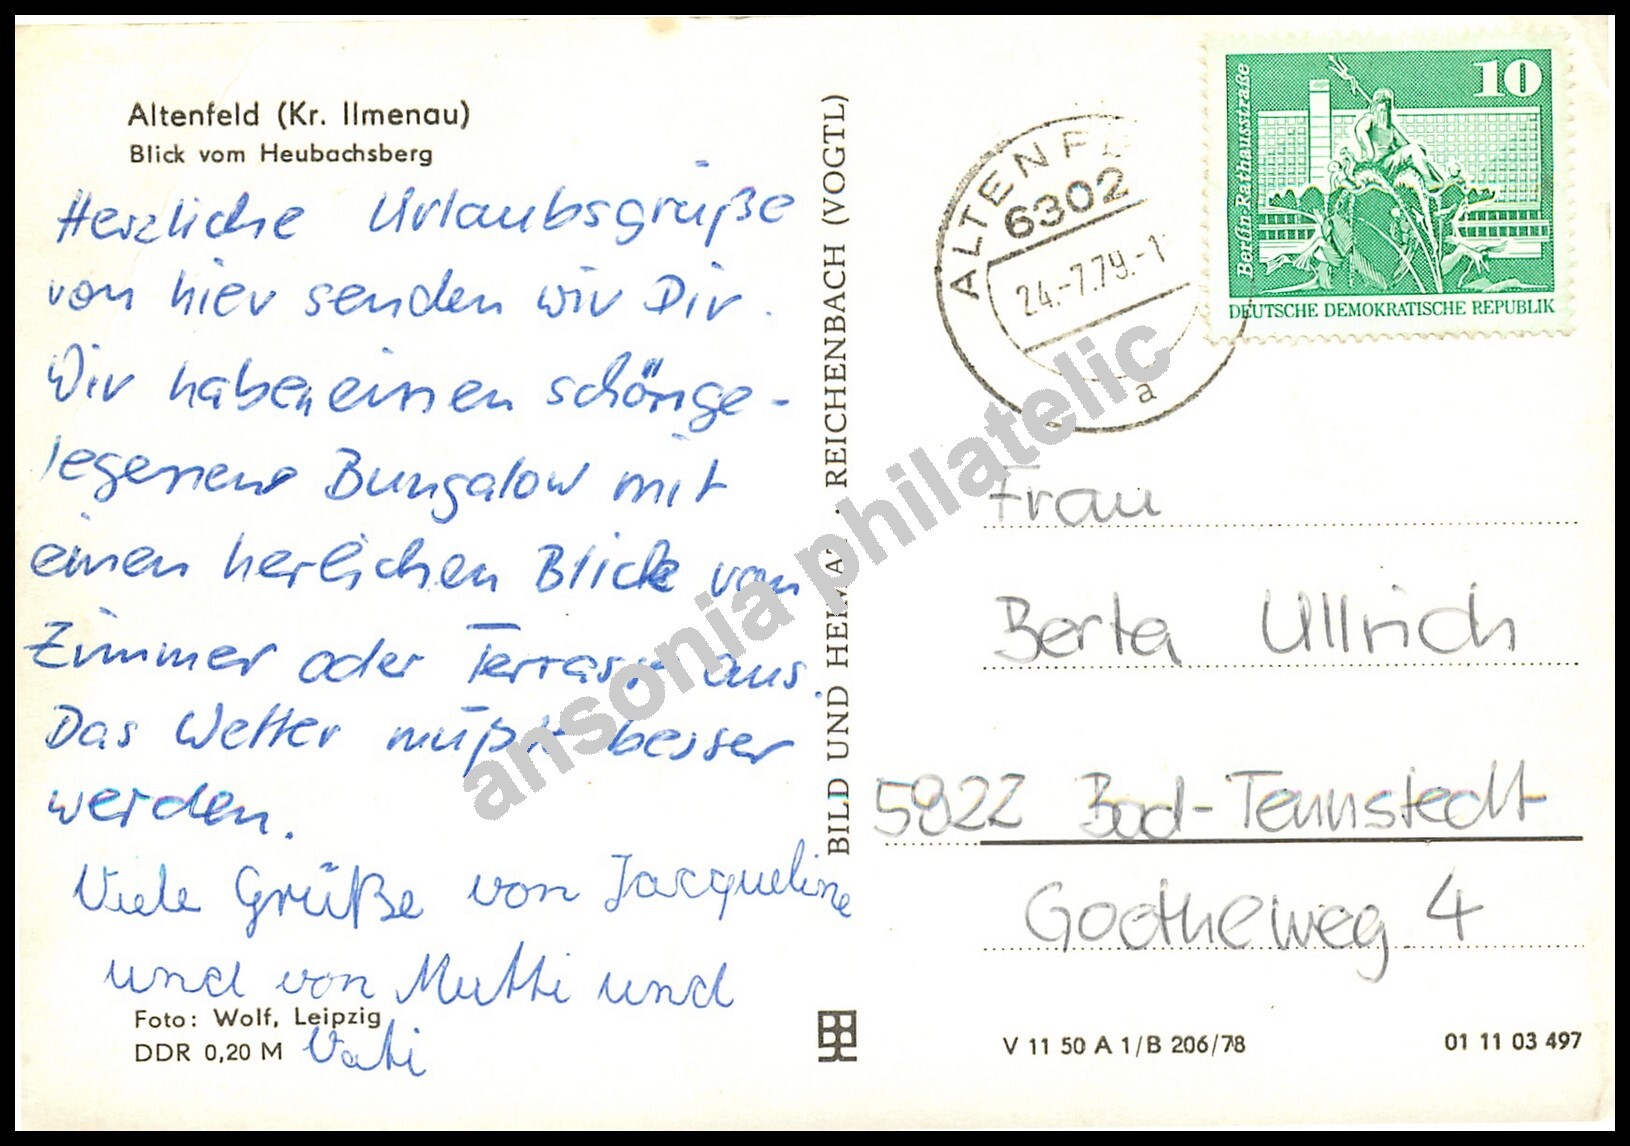 Altenfeld (Kr. Ilmenau)
Blick vom Heubachsberg
Herzliche Urlaubsgrüße
von hier senden wir Dir.
Wir haben einen schönge-
legenene Bungalow mit
einen herlichen Blick vom
Zimmer oder Terrasse aus.
Das Wetter müßte besser
werden.
Viele Grüße von Jacqueline
und von Mutti und
Vati
Foto: Wolf, Leipzig
DDR 0,20 M
BILD UND HEIMAT · REICHENBACH (VOGTL)
ALTENFE
6302
24.-7.79.-1
a
10
Berlin·Rathausstraße
DEUTSCHE DEMOKRATISCHE REPUBLIK
Frau
Berta Ullrich
5922 Bad-Tennstedt
Goetheweg 4
V 11 50 A 1/B 206/78
01 11 03 497
ansonia philatelic